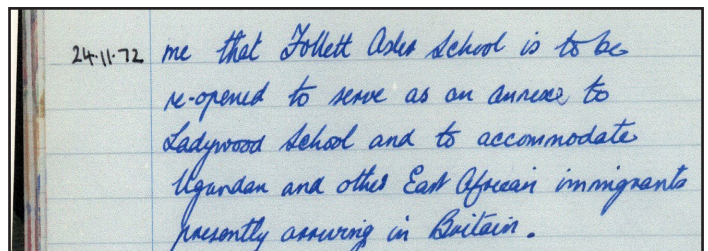 24·11·72 me that Follett Osler School is to be
re-opened to serve as an annexe to
Ladywood School and to accommodate
Ugandan and other East African immigrants
presently arriving in Britain.